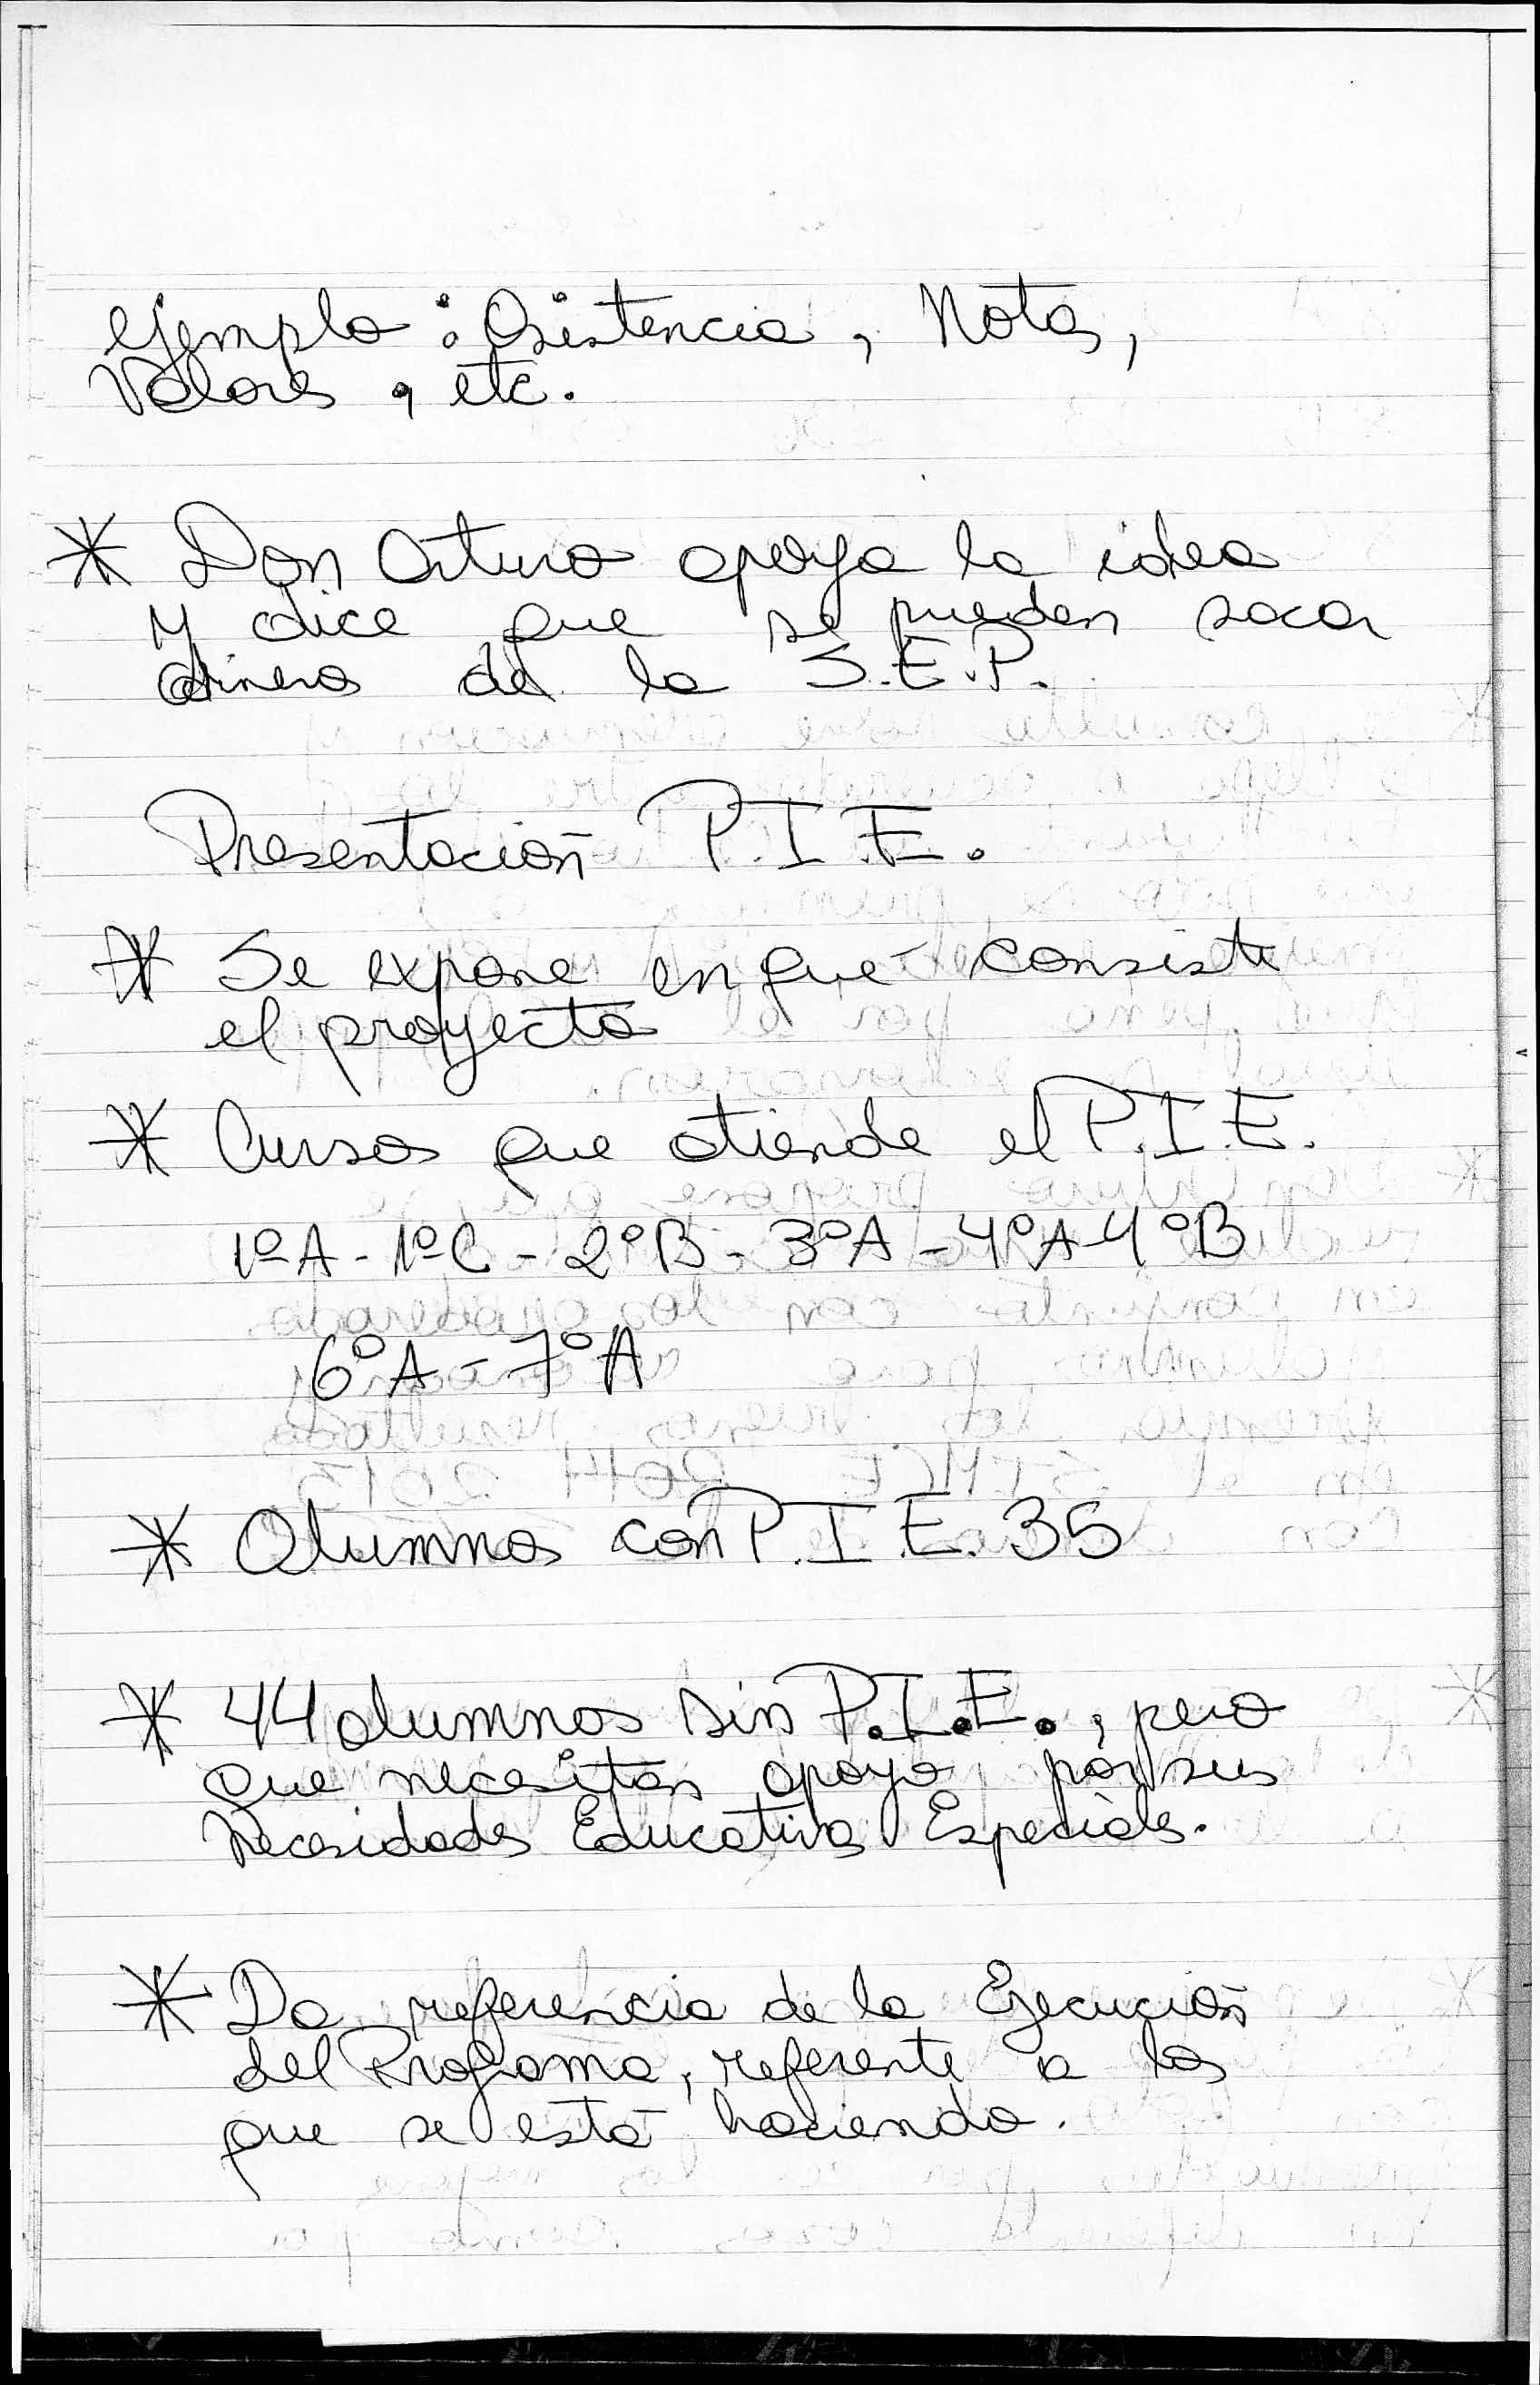 ejemplo : Asistencia, Notas,
Valores, etc.
* Don Arturo apoya la idea
y dice que se pueden sacar
dineros de la S.E.P.
Presentación P.I.E.
* Se expone en que consiste
el proyecto
* Cursos que atiende el P.I.E.
1ºA - 1ºC - 2ºB - 3ºA - 4ºA - 4ºB
6ºA - 7ºA
* Alumnos con P.I.E. 35
* 44 alumnos sin P.I.E., pero
que necesitan apoyo por sus
Necesidades Educativas Especiales.
* Da referencia de la Ejecución
del Programa, referente a los
que se está haciendo.